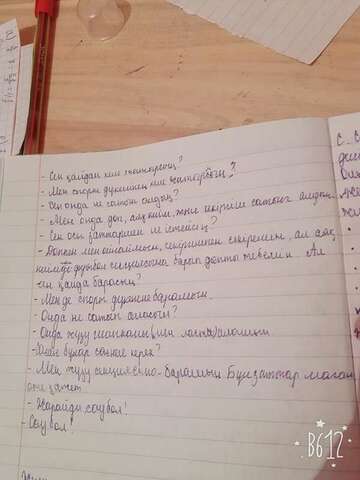 - Сен қайдан келе жатырсың?
- Мен спорт дүкенінен келе жатырмын?
- Сен онда не сатып алдың?
- Мен онда доп, аяқ киім және секіргіш сатып алдым.
- Сен осы заттармен не істейсің?
- Доппен мен ойнаймын, секіргішпен секіремін, ал аяқ
киімде футбол секциясына барып допты тебемін. Ал
сен қайда барасың?
- Мен де спорт дүкеніне барамын.
- Онда не сатып аласың?
- Онда жүзу
- Саған бұлар
- Мен жүзу секциясына барамын. Бұл заттар маған
өте қажет.
- Жарайды, сау бол!
- Сау бол!
B612